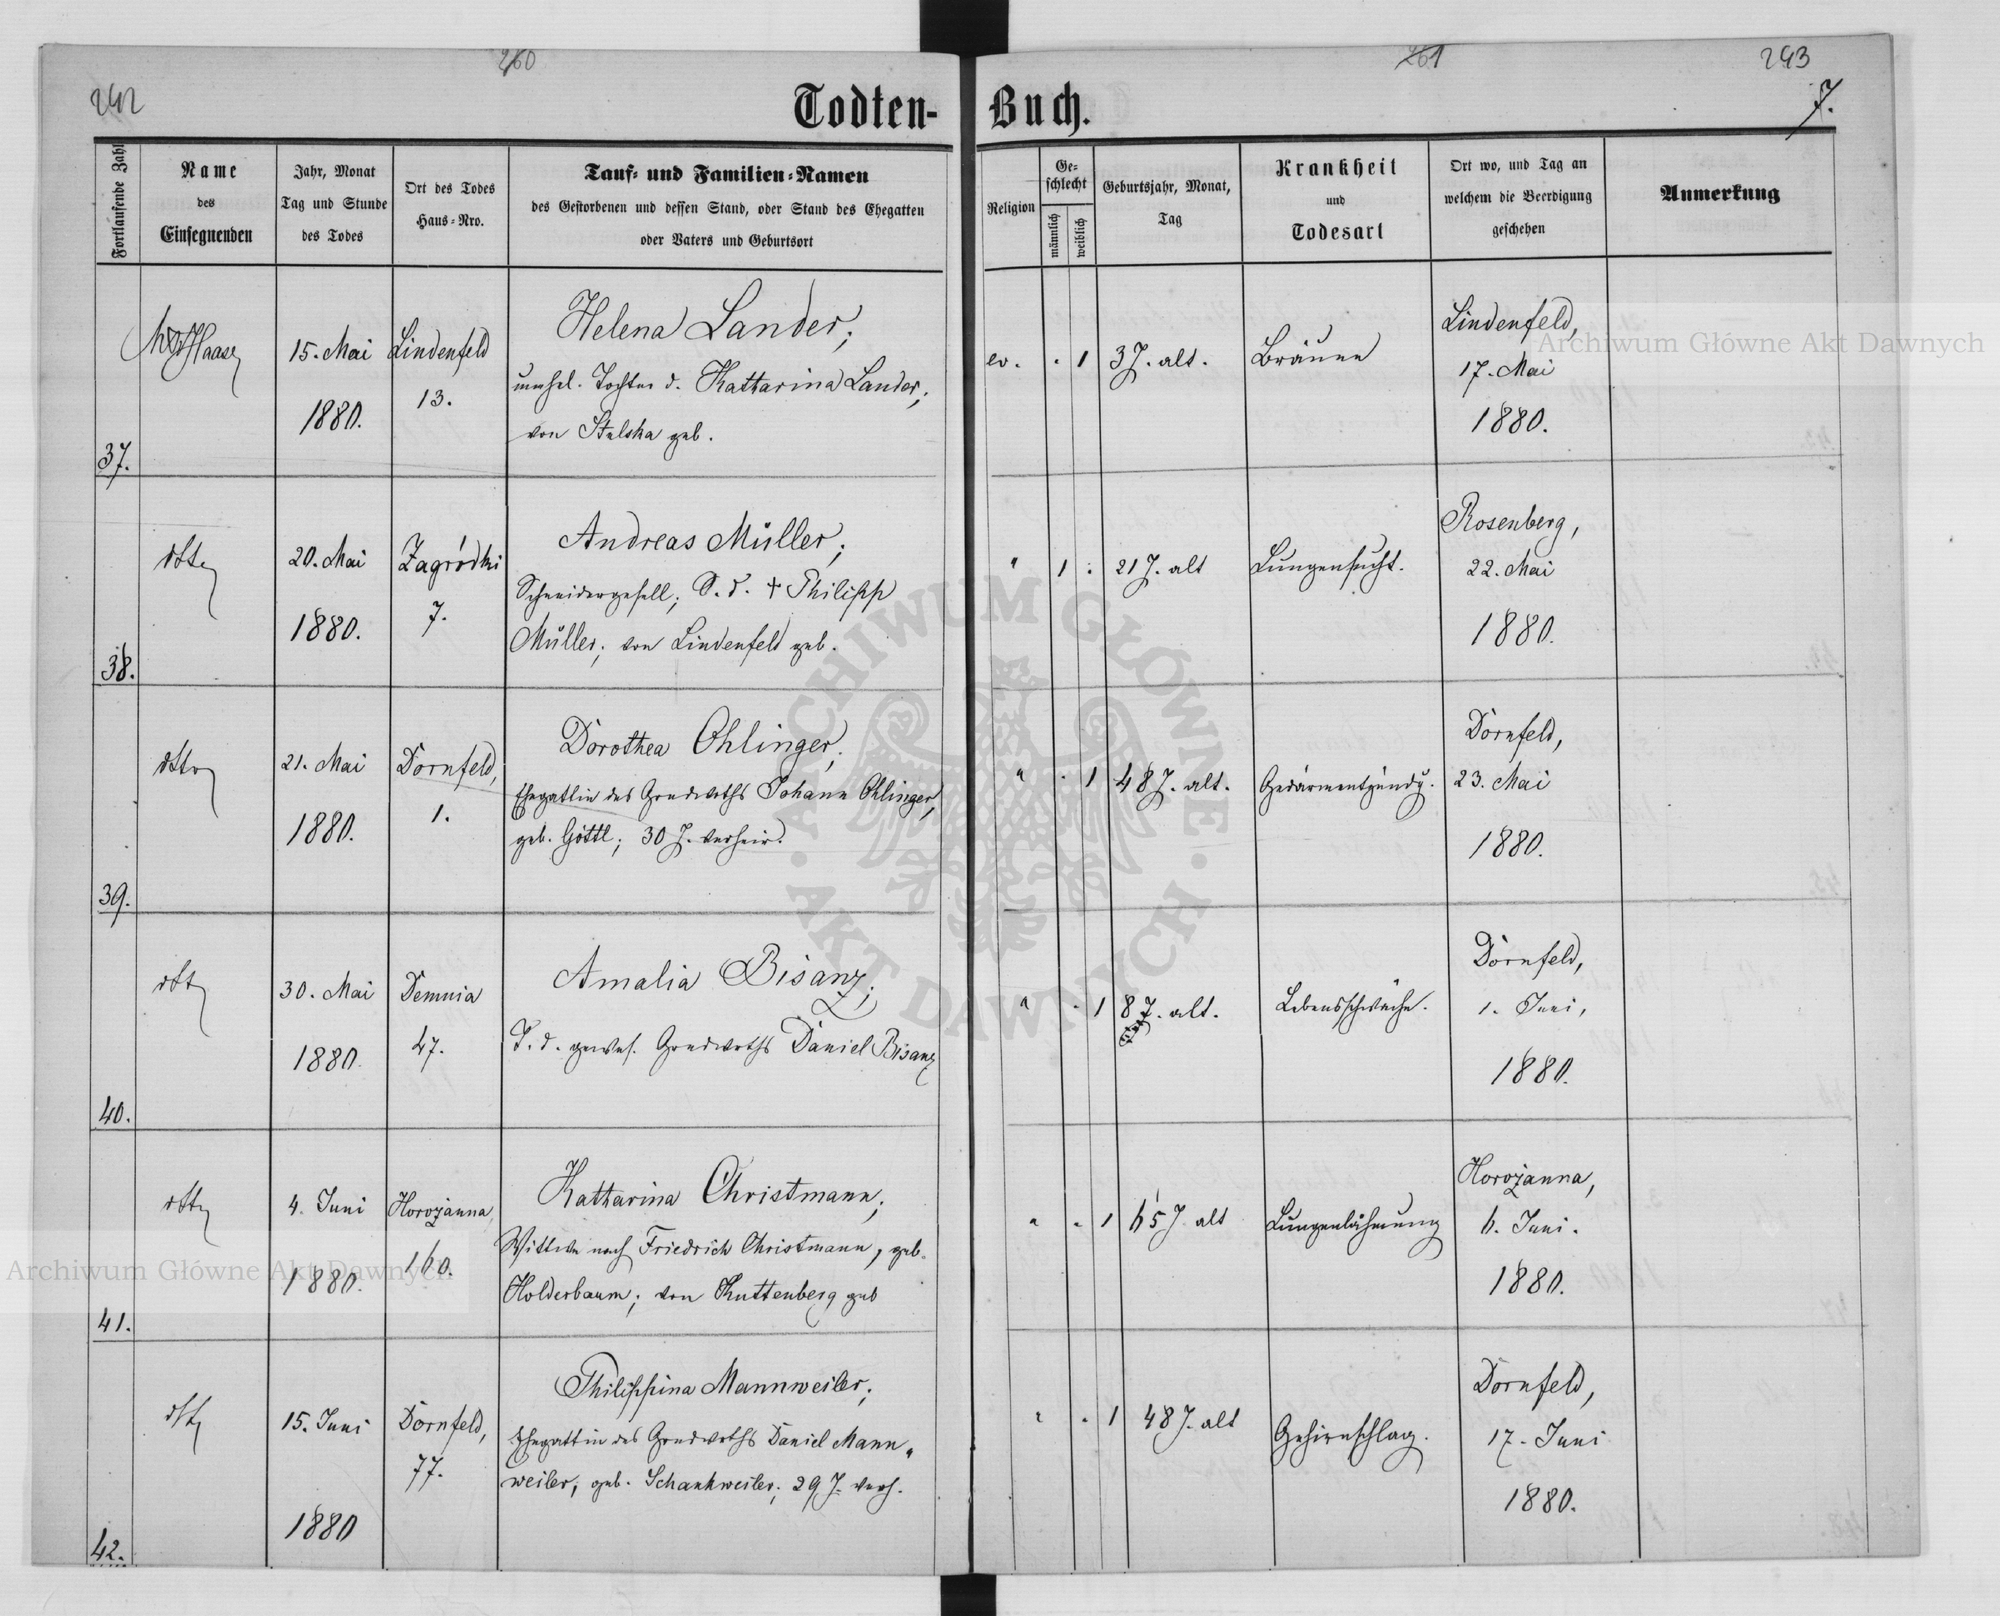 260
261
243
242
7.
Todten-Buch.
Fortlaufende Zahl
Name
des
Einsegnenden
Jahr, Monat
Tag und Stunde
des Todes
Ort des Todes
Haus-Nro.
Tauf- und Familien-Namen
des Gestorbenen und dessen Stand, oder Stand des Ehegatten
oder Vaters und Geburtsort
Religion
Ge-
schlecht
männlich
weiblich
Geburtsjahr, Monat,
Tag
Krankheit
und
Todesart
Ort wo, und Tag an
welchem die Beerdigung
geschehen
Anmerkung
37.
Haase
15. Mai
1880.
Lindenfeld
13.
Helena Lander,
unehel. Tochter d. Kattarina Lander,
von Stulska geb.
ev. . 1
3 J. alt.
Bräune
Lindenfeld,
17. Mai
1880.
38.
dtto
20. Mai
1880.
Zagródki
7.
Andreas Müller,
Schneidergesell; S. d. + Philipp
Müller, von Lindenfeld geb.
" 1 .
21 J. alt
Lungensucht.
Rosenberg,
22. Mai
1880.
39.
dtto
21. Mai
1880.
Dornfeld,
1.
Dorothea Ohlinger,
Ehegattin des Grndwrths Johann Ohlinger,
geb. Göttl; 30 J. verheir.
" . 1
48 J. alt.
Gedärmentzündg.
Dornfeld,
23. Mai
1880.
40.
dtto
30. Mai
1880.
Demnia
47.
Amalia Bisanz;
T. d. gewes. Grndwrths Daniel Bisanz
" . 1
8 J. alt.
Lebensschwäche.
Dornfeld,
1. Juni,
1880.
41.
dtto
4. Juni
1880.
Horożanna,
160.
Kattarina Christmann,
Wittwe nach Friedrich Christmann, geb.
Holderbaum; von Kuttenberg geb
" . 1
65 J. alt
Lungenlähmung
Horożanna,
6. Juni.
1880.
42.
dtto
15. Juni
1880
Dornfeld,
77.
Philippina Mannweiler,
Ehegattin des Grndwrths Daniel Mann„
weiler, geb. Schankweiler; 29 J. verh.
" . 1
48 J. alt
Gehirnschlag.
Dornfeld,
17. Juni
1880.
Archiwum Główne Akt Dawnych
Archiwum Główne Akt Dawnych
ARCHIWUM GŁÓWNE · AKT DAWNYCH ·